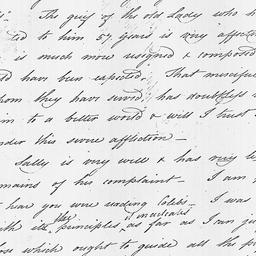 The grief of the old Lady who h
ted to him 57 years is very affec
is much more resigned & composed
ld have been expected. That merciful
hom they have served, has doubtless
im to a better world & will I trust
under this severe affliction —
Sally is very well & has very
mains of his complaint — I am
hear you were reading Cobbs — I was
the inculcates
ith his principles, as far as I can ju
hose which ought to guide all the pr